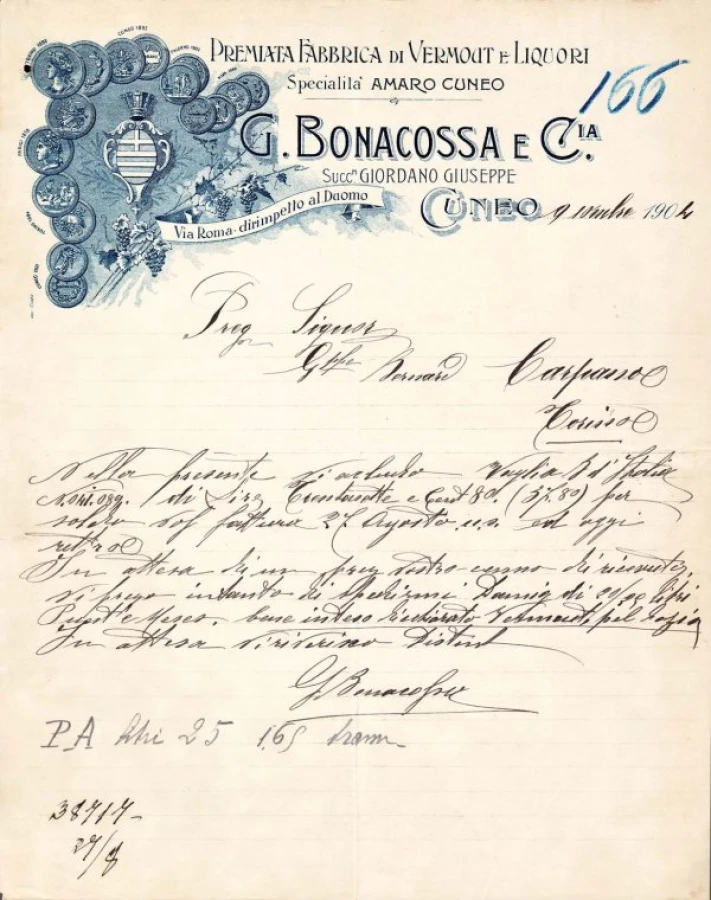 PREMIATA FABBRICA DI VERMOUT E LIQUORI
Specialità AMARO CUNEO
166
G. BONACOSSA E C.IA
Succri GIORDANO GIUSEPPE
Via Roma - dirimpetto al Duomo
CUNEO 9 1902
Preg Signor
Gppe Bernard Carpano
Torino
Nella presente vi acludo Vaglia B d'Italia
N. 041.089. di Lire Trentasette e Cent 80. (37.80) per
saldo fattura 27 Agosto u.s. ed oggi
In attesa di un preg vostro cenno di ricevuta,
vi prego intanto di spedirmi Damig di litri
Punt e Mezzo. base inteso Vermout pel
In attesa vi riverisco Distint
G. Bonacossa
P.A litri 25 1.65
38717-
27/8